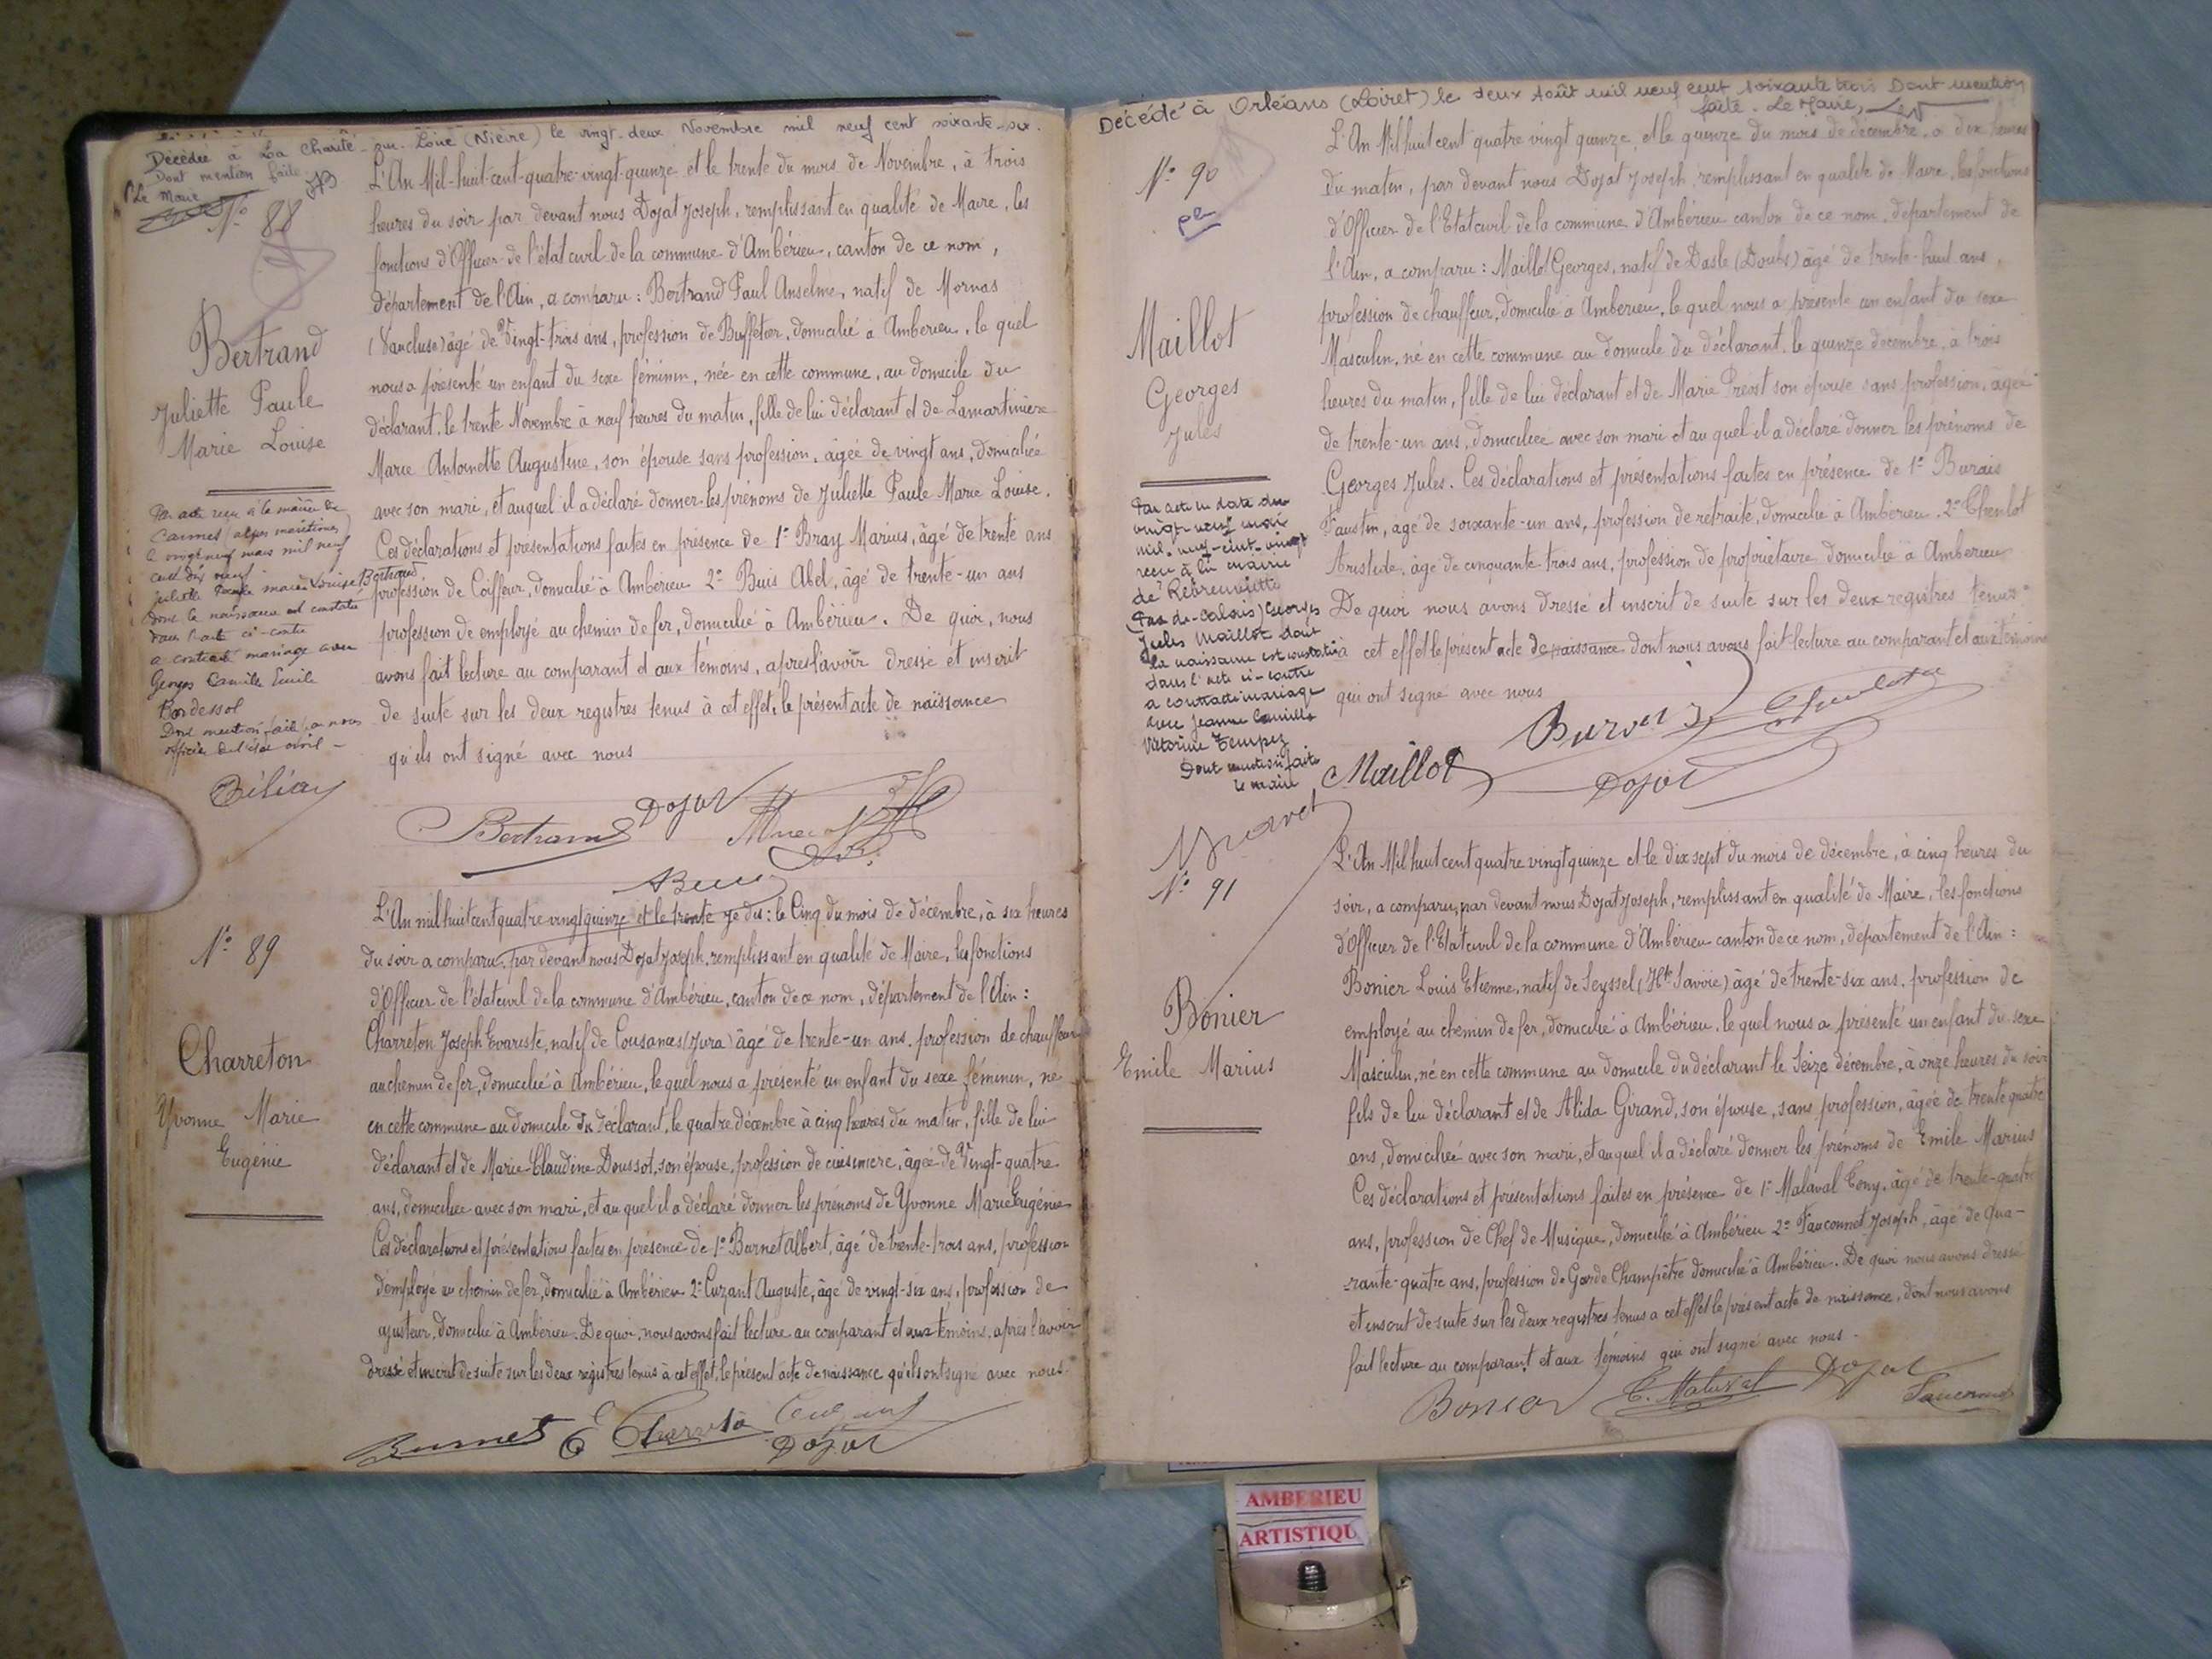 Décédée à La Charité-sur-Loire (Nièvre) le vingt-deux Novembre mil neuf cent soixante-six.
Dont mention faite
Le Maire
N° 88
Bertrand
Juliette Paule
Marie Louise
L'An Mil-huit-cent-quatre-vingt-quinze et le trente du mois de Novembre, à trois
heures du soir par devant nous Dojat Joseph, remplissant en qualité de Maire, les
fonctions d'Officier de l'état civil de la commune d'Ambérieu, canton de ce nom,
département de l'Ain, a comparu : Bertrand Paul Anselme, natif de Mornas
(Vaucluse) âgé de Vingt-trois ans, profession de Buffetier, domicilié à Ambérieu, le quel
nous a présenté un enfant du sexe féminin, née en cette commune, au domicile du
déclarant, le trente Novembre à neuf heures du matin, fille de lui déclarant et de Lamartinière
Marie Antoinette Augustine, son épouse sans profession, âgée de vingt ans, domiciliée
avec son mari, et auquel il a déclaré donner les prénoms de Juliette Paule Marie Louise.
Ces déclarations et présentations faites en présence de 1° Bray Marius, âgé de trente ans
profession de Coiffeur, domicilié à Ambérieu 2° Buis Abel, âgé de trente-un ans
profession de employé au chemin de fer, domicilié à Ambérieu. De quoi, nous
avons fait lecture au comparant et aux témoins, après l'avoir dressé et inscrit
de suite sur les deux registres tenus à cet effet, le présent acte de naissance
qu'ils ont signé avec nous
Par acte reçu à la mairie de
Cannes (alpes maritimes)
le vingt neuf mars mil neuf
cent dix neuf
Juliette Paule Marie Louise Bertrand
dont la naissance est constatée
dans l'acte ci-contre
a contracté mariage avec
Georges Camille Emile
Bordessol
Dont mention faite par nous
officier de l'état civil -
Bertrand Dojat
N° 89
Charreton
Yvonne Marie
Eugénie
L'An mil huit cent quatre vingt quinze et le trente je dis : le Cinq du mois de décembre, à six heures
du soir a comparu, par devant nous Dojat Joseph, remplissant en qualité de Maire, les fonctions
d'Officier de l'état civil de la commune d'Ambérieu, canton de ce nom, département de l'Ain :
Charreton Joseph Evariste, natif de Cousances (Jura) âgé de trente-un ans, profession de chauffeur
au chemin de fer, domicilié à Ambérieu, le quel nous a présenté un enfant du sexe féminin, né
en cette commune au domicile du déclarant, le quatre décembre à cinq heures du matin, fille de lui
déclarant et de Marie-Claudine Doussot, son épouse, profession de cuisinière, âgée de Vingt-quatre
ans, domiciliée avec son mari, et au quel il a déclaré donner les prénoms de Yvonne Marie Eugénie
Ces déclarations et présentations faites en présence de 1° Burnet Albert, âgé de trente-trois ans, profession
d'employé au chemin de fer, domicilié à Ambérieu 2° Auguste, âgé de vingt-six ans, profession de
ajusteur, domicilié à Ambérieu. De quoi, nous avons fait lecture au comparant et aux témoins, après l'avoir
dressé et inscrit de suite sur les deux registres tenus à cet effet, le présent acte de naissance qu'ils ont signé avec nous
Burnet Dojat
Décédé à Orléans (Loiret) le deux Août mil neuf cent soixante trois Dont mention
faite. Le Maire,
N° 90
Maillot
Georges
Jules
L'An Mil huit cent quatre vingt quinze, et le quinze du mois de décembre, à dix heures
du matin, par devant nous Dojat Joseph, remplissant en qualité de Maire, les fonctions
d'Officier de l'Etat civil de la commune d'Ambérieu canton de ce nom, département de
l'Ain, a comparu : Maillot Georges, natif de Dasle (Doubs) âgé de trente-huit ans,
profession de chauffeur, domicilié à Ambérieu, le quel nous a présenté un enfant du sexe
Masculin, né en cette commune au domicile du déclarant, le quinze décembre, à trois
heures du matin, fille de lui déclarant et de Marie Prévot son épouse sans profession, âgée
de trente-un ans, domiciliée avec son mari et au quel il a déclaré donner les prénoms de
Georges Jules. Ces déclarations et présentations faites en présence de 1°
Faustin, âgé de soixante-un ans, profession de retraité, domicilié à Ambérieu. 2°
Aristide, âgé de cinquante-trois ans, profession de propriétaire domicilié à Ambérieu
De quoi nous avons dressé et inscrit de suite sur les deux registres tenus
à cet effet le présent acte de naissance dont nous avons fait lecture au comparant et aux témoins
qui ont signé avec nous
Par acte en date du
vingt-neuf mai
mil-neuf-cent-vingt
reçu à la mairie
de Rebreuviette
(Pas-de-Calais) Georges
Jules Maillot dont
la naissance est constatée
dans l'acte ci-contre
a contracté mariage
avec Jeanne Camille
Victorine Tempez
Dont mention faite
le maire
Maillot Dojat
N° 91
Bonier
Emile Marius
L'An Mil huit cent quatre vingt quinze et le dix sept du mois de décembre, à cinq heures du
soir, a comparu, par devant nous Dojat Joseph, remplissant en qualité de Maire, les fonctions
d'Officier de l'Etat civil de la commune d'Ambérieu canton de ce nom, département de l'Ain :
Bonier Louis Etienne, natif de Seyssel (Hte Savoie) âgé de trente-six ans, profession de
employé au chemin de fer, domicilié à Ambérieu, le quel nous a présenté un enfant du sexe
Masculin, né en cette commune au domicile du déclarant le Seize décembre, à onze heures du soir
fils de lui déclarant et de Alida Girand, son épouse, sans profession, âgée de trente quatre
ans, domiciliée avec son mari, et auquel il a déclaré donner les prénoms de Emile Marius
Ces déclarations et présentations faites en présence de 1° Malaval Tony, âgé de trente-quatre
ans, profession de Chef de Musique, domicilié à Ambérieu 2° Fauconnet Joseph, âgé de qua-
-rante-quatre ans, profession de Garde Champêtre domicilié à Ambérieu. De quoi nous avons dressé
et inscrit de suite sur les deux registres tenus à cet effet le présent acte de naissance, dont nous avons
fait lecture au comparant et aux témoins qui ont signé avec nous.
Bonier T. Malaval Dojat Fauconnet
AMBERIEU
ARTISTIQU